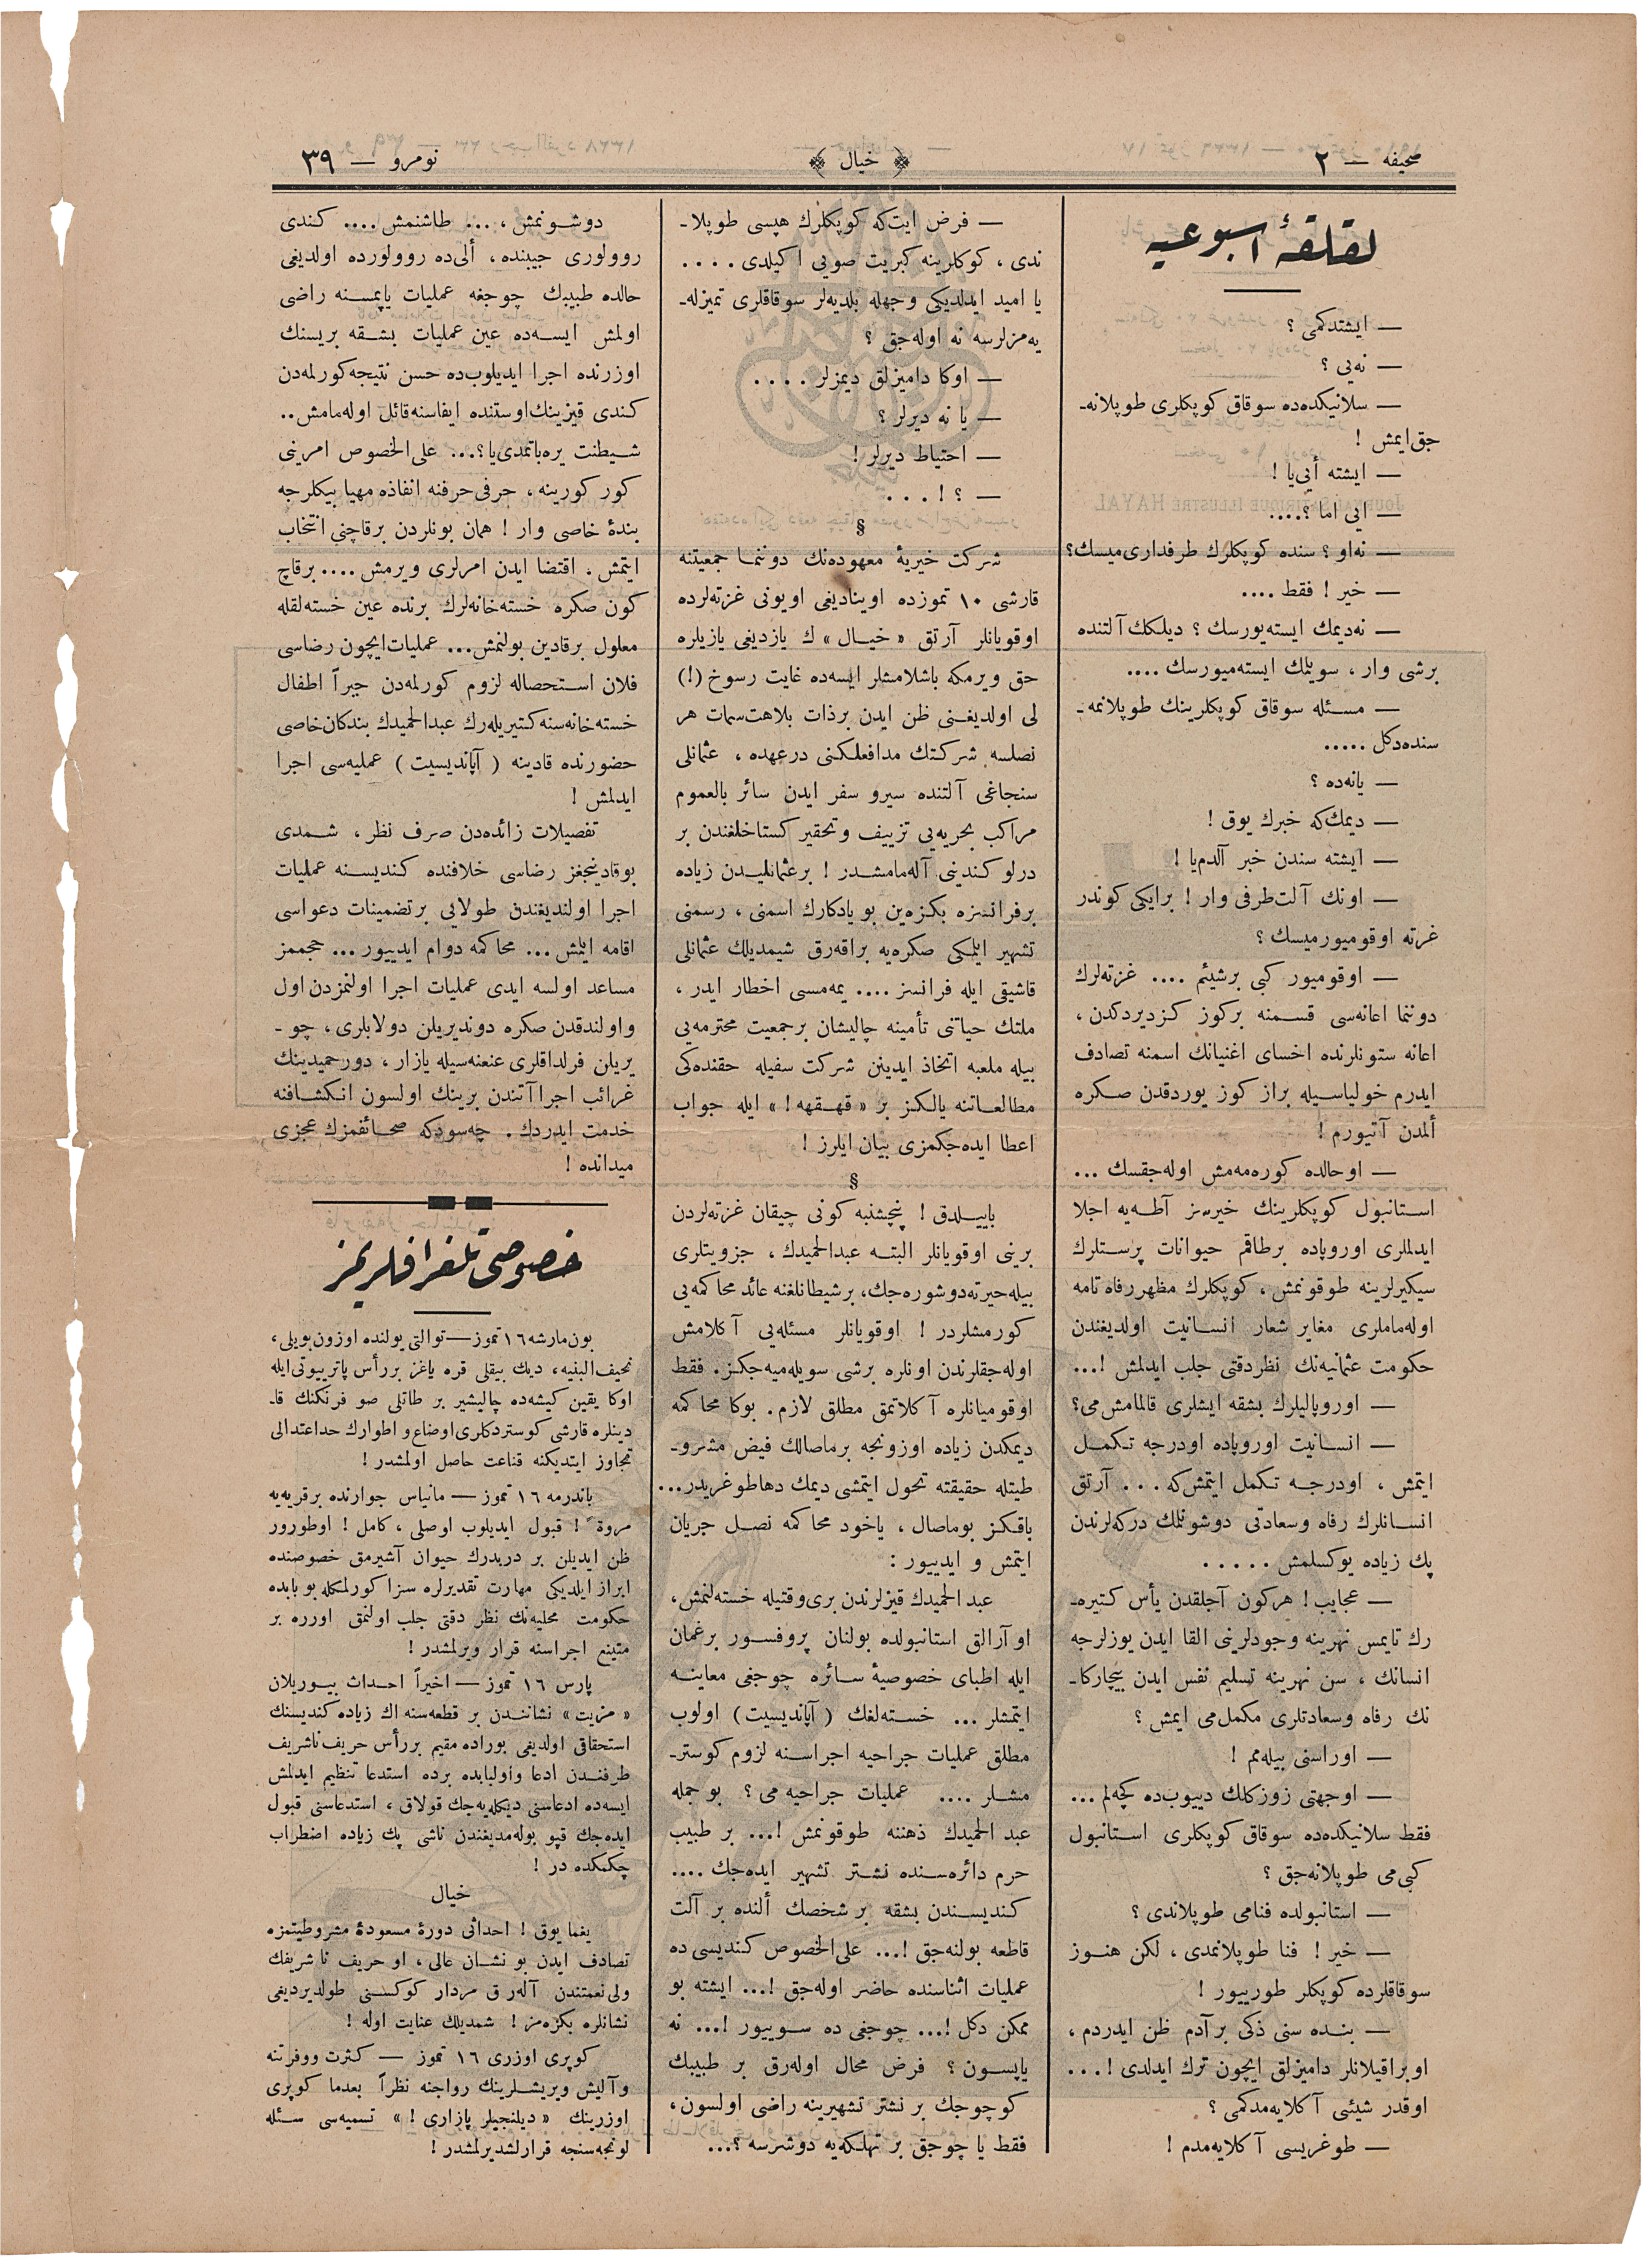 صحیفه — ٢
﴿ خیال ﴾
نومرو — ٣٩
لقلقهٔ اسبوعیه
— ایشتدکمی ؟
— نه‌یی ؟
— سلانیکده‌ده سوقاق کوپکلری طوپلانه‌ـ
جق‌ایمش !
— ایشته أیی‌یا !
— ایی اما ؟....
— نه‌او ؟ سنده کوپکلرك طرفداری‌میسك؟
— خیر ! فقط ....
— نه‌دیمك ایسته‌یورسك ؟ دیلکك آلتنده
برشی وار ، سویلمك ایسته‌میورسك ....
— مسئله سوقاق کوپکلرینك طوپلانمه‌ـ
سنده‌دکل .....
— یانه‌ده ؟
— دیمك‌که خبرك یوق !
— ایشته سندن خبر آلدم‌یا !
— اونك آلت‌طرفی وار ! برایکی کوندر
غزته اوقومیورمیسك ؟
— اوقومیور کبی برشیئم .... غزته‌لرك
دوننما اعانه‌سی قسمنه برکوز کزدیردکدن ،
اعانه ستونلرنده اخسای اغنیانك اسمنه تصادف
ایدرم خولیاسیله براز کوز یوردقدن صکره
ألمدن آتیورم !
— اوحالده کوره‌مه‌مش اوله‌جقسك ...
استانبول کوپکلرینك خیرسز آطه‌یه اجلا
ایدلملری اوروپاده برطاقم حیوانات پرستلرك
سیکیرلرینه طوقونمش ، کوپکلرك مظهر رفاه تامه
اوله‌ماملری مغایر شعار انسانیت اولدیغندن
حکومت عثمانیه‌نك نظردقتی جلب ایدلمش !...
— اوروپالیلرك بشقه ایشلری قالمامش‌می؟
— انسانیت اوروپاده اودرجه تکمل
ایتمش ، اودرجه تکمل ایتمش‌که ... آرتق
انسانلرك رفاه وسعادتی دوشونمك درکه‌لرندن
پك زیاده یوکسلمش .....
— عجایب ! هرکون آجلقدن یأس کتیره‌ـ
رك تایمس نهرینه وجودلرینی القا ایدن یوزلرجه
انسانك ، سن نهرینه تسلیم نفس ایدن بیچارکاـ
نك رفاه وسعادتلری مکمل‌می ایمش ؟
— اوراسنی بیله‌مم !
— اوجهتی زوزکلك دییوب‌ده کچه‌لم ...
فقط سلانیکده‌ده سوقاق کوپکلری استانبول
کبی‌می طوپلانه‌جق ؟
— استانبولده فنامی طوپلاندی ؟
— خیر ! فنا طوپلانمدی ، لکن هنوز
سوقاقلرده کوپکلر طورییور !
— بنده سنی ذکی برآدم ظن ایدردم ،
اوبراقیلانلر دامیزلق ایچون ترك ایدلدی !...
اوقدر شیئی آکلایه‌مدکمی ؟
— طوغریسی آکلایه‌مدم !
— فرض ایت‌که کوپکلرك هپسی طوپلاـ
ندی ، کوکلرینه کبریت صویی اکیلدی ....
یا امید ایدلدیکی وجهله بلدیه‌لر سوقاقلری تمیزله‌ـ
یه‌مزلرسه نه اوله‌جق ؟
— اوکا دامیزلق دیمزلر ....
— یا نه دیرلر ؟
— احتیاط دیرلر !
— ؟ ! ...
§
شرکت خیریهٔ معهوده‌نك دوننما جمعیتنه
قارشی ١٠ تموزده اوینادیغی اویونی غزته‌لرده
اوقویانلر آرتق « خیال » ك یازدیغی یازیلره
حق ویرمکه باشلامشلر ایسه‌ده غایت رسوخ (!)
لی اولدیغنی ظن ایدن برذات بلاهت‌سمات هر
نصلسه شرکتك مدافعلکنی درعهده ، عثمانلی
سنجاغی آلتنده سیرو سفر ایدن سائر بالعموم
مراکب بحریه‌یی تزییف وتحقیر کستاخلغندن بر
درلو کندینی آله‌مامشدر ! برعثمانلیدن زیاده
برفرانسزه بکزه‌ین بو یادکارك اسمنی ، رسمنی
تشهیر ایلمکی صکره‌یه براقه‌رق شیمدیلك عثمانلی
قاشیقی ایله فرانسز .... یمه‌مسی اخطار ایدر ،
ملتك حیاتنی تأمینه چالیشان برجمعیت محترمه‌یی
بیله ملعبه اتخاذ ایدینن شرکت سفیله حقنده‌کی
مطالعاتنه یالکز بر « قهقهه ! » ایله جواب
اعطا ایده‌جکمزی بیان ایلرز !
§
باییلدق ! پنجشنبه کونی چیقان غزته‌لردن
برینی اوقویانلر البته عبدالحمیدك ، جزویتلری
بیله حیرته‌دوشوره‌جك، برشیطانلغنه عائد محاکمه‌یی
کورمشلردر ! اوقویانلر مسئله‌یی آکلامش
اوله‌جقلرندن اونلره برشی سویله‌میه‌جکز. فقط
اوقومیانلره آکلاتمق مطلق لازم. بوکا محاکمه
دیمکدن زیاده اوزونجه برماصالك فیض مشروـ
طیتله حقیقته تحول ایتمشی دیمك دهاطوغریدر...
باقکز بوماصال ، یاخود محاکمه نصل جریان
ایتمش و ایدییور :
عبدالحمیدك قیزلرندن بری‌وقتیله خسته‌لنمش،
اوآرالق استانبولده بولنان پروفسور برغمان
ایله اطبای خصوصیهٔ سائره چوجغی معاینه
ایتمشلر ... خسته‌لغك ( آپاندیسیت ) اولوب
مطلق عملیات جراحیه اجراسنه لزوم کوسترـ
مشلر .... عملیات جراحیه می ؟ بوجمله
عبدالحمیدك ذهننه طوقونمش !... بر طبیب
حرم دائره‌سنده نشتر تشهیر ایده‌جك ....
کندیسندن بشقه بر شخصك ألنده بر آلت
قاطعه بولنه‌جق !... علی‌الخصوص کندیسی ده
عملیات اثناسنده حاضر اوله‌جق !... ایشته بو
ممکن دکل !... چوجغی ده سوییور !... نه
یاپسون ؟ فرض محال اوله‌رق بر طبیبك
کوچوجك بر نشتر تشهیرینه راضی اولسون،
فقط یا چوجق بر تهلکه‌یه دوشرسه ؟...
دوشونمش ، ... طاشنمش .... کندی
روولوری جیبنده ، ألی‌ده روولورده اولدیغی
حالده طبیبك چوجغه عملیات یاپمسنه راضی
اولمش ایسه‌ده عین عملیات بشقه بریسنك
اوزرنده اجرا ایدیلوب‌ده حسن نتیجه‌کورلمه‌دن
کندی قیزینك‌اوستنده ایفاسنه‌قائل اوله‌مامش..
شیطنت یره‌باتمدی‌یا؟... علی‌الخصوص امرینی
کور کورینه ، حرفی‌حرفنه انفاذه مهیا بیکلرجه
بندهٔ خاصی وار ! همان بونلردن برقاچنی انتخاب
ایتمش ، اقتضا ایدن امرلری ویرمش .... برقاچ
کون صکره خسته‌خانه‌لرك برنده عین خسته‌لقله
معلول برقادین بولنمش... عملیات‌ایچون رضاسی
فلان استحصاله لزوم کورلمه‌دن جبراً اطفال
خسته‌خانه‌سنه کتیریله‌رك عبدالحمیدك بندکان‌خاصی
حضورنده قادینه ( آپاندیسیت ) عملیه‌سی اجرا
ایدلمش !
تفصیلات زائده‌دن صرف نظر ، شمدی
بوقادینجغز رضاسی خلافنده کندیسنه عملیات
اجرا اولندیغندن طولایی برتضمینات دعواسی
اقامه ایلمش ... محاکمه دوام ایدییور ... حجممز
مساعد اولسه ایدی عملیات اجرا اولنمزدن اول
واولندقدن صکره دوندیریلن دولابلری ، چوـ
یریلن فرلداقلری عنعنه‌سیله یازار ، دورحمیدینك
غرائب اجراآتندن برینك اولسون انکشافنه
خدمت ایدردك . چه‌سودکه صحائفمزك عجزی
میدانده !
خصوصی تلغرافلریمز
بون‌مارشه ١٦ تموز — توالتی یولنده اوزون‌بویلی ،
نحیف‌البنیه ، دیك بیقلی قره یاغز بررأس پاتریبوتی‌ایله
اوکا یقین کیشه‌ده چالیشیر بر طاتلی صو فرنکنك قاـ
دینلره قارشی کوستردکلری‌اوضاع‌و اطوارك حداعتدالی
تجاوز ایتدیکنه قناعت حاصل اولمشدر !
باندرمه ١٦ تموز — مانیاس جوارنده برقریه‌یه
مروة ! قبول ایدیلوب اوصلی ، کامل ! اوطورور
ظن ایدیلن بر دربدرك حیوان آشیرمق خصوصنده
ابراز ایلدیکی مهارت تقدیرلره سزا کورلمکله بوبابده
حکومت محلیه‌نك نظر دقتی جلب اولنمق اوزره بر
متینع اجراسنه قرار ویرلمشدر !
پارس ١٦ تموز — اخیراً احداث بیوریلان
« مزیت » نشانندن بر قطعه‌سنه اك زیاده کندیسنك
استحقاقی اولدیغی بوراده مقیم بررأس حریف ناشریف
طرفندن ادعا واولبابده برده استدعا تنظیم ایدلمش
ایسه‌ده ادعاسنی دیکله‌یه‌جك قولاق ، استدعاسنی قبول
ایده‌جك قپو بوله‌مدیغندن ناشی پك زیاده اضطراب
چکمکده در !
خیال
یغما یوق ! احداثی دورهٔ مسعودهٔ مشروطیتمزه
تصادف ایدن بو نشان عالی ، او حریف ناشریفك
ولی‌نعمتندن آله‌رق مردار کوکسنی طولدیردیغی
نشانلره بکزه‌مز ! شمدیلك عنایت اوله !
کوپری اوزری ١٦ تموز — کثرت ووفرتنه
وآلیش ویریشلرینك رواجنه نظراً بعدما کوپری
اوزرینك « دیلنجیلر پازاری ! » تسمیه‌سی سئله
لونجه‌سنجه قرارلشدیرلمشدر !